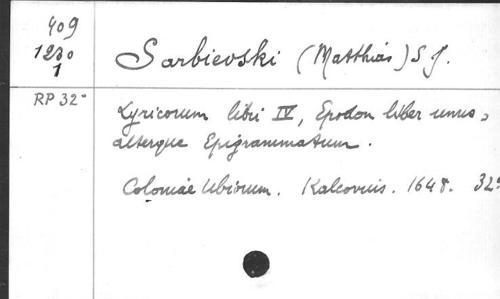 409
1230
1
Sarbievski (Matthias) S J.
RP 32°
Lyricorum libri IV, Epodon liber unus,
alterque Epigrammatum.
Coloniae Ubiorum. Kalcovius. 1648. 32°